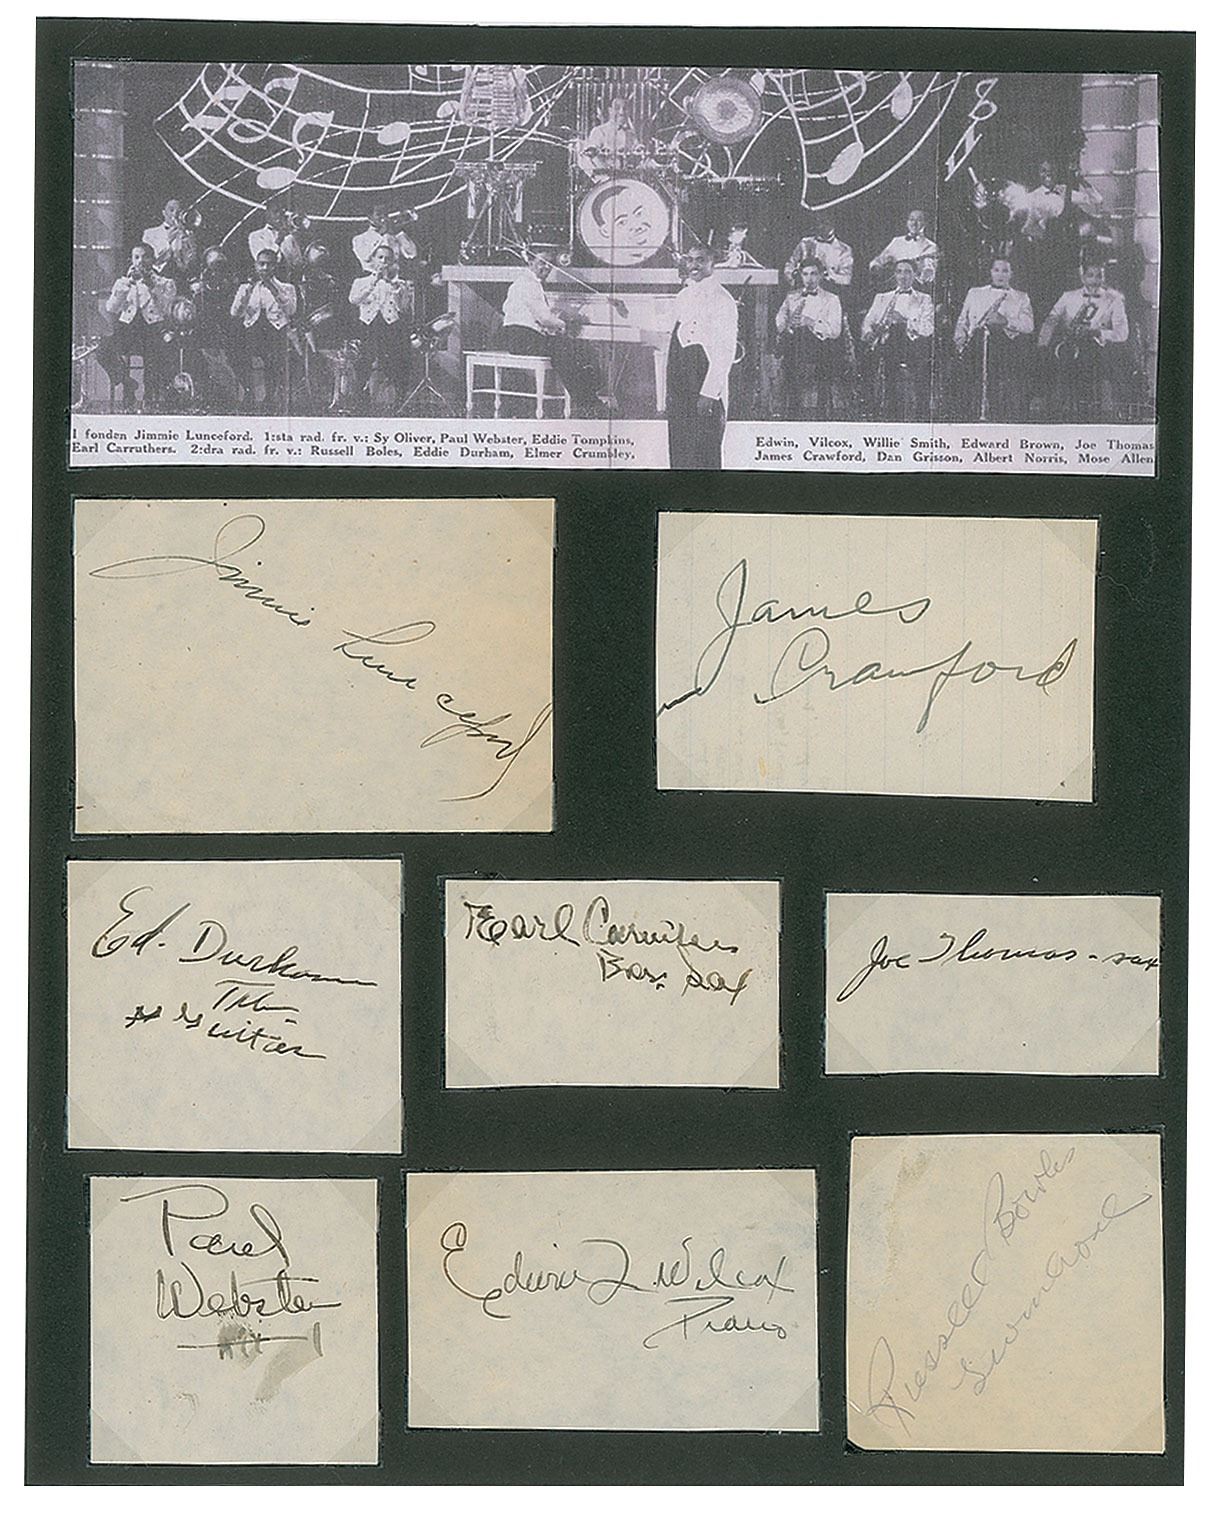 I fonden Jimmie Lunceford. 1:sta rad. fr. v.: Sy Oliver, Paul Webster, Eddie Tompkins,
Earl Carruthers. 2:dra rad. fr. v.: Russell Boles, Eddie Durham, Elmer Crumbley,
Edwin, Vilcox, Willie Smith, Edward Brown, Joe Thomas
James Crawford, Dan Grisson, Albert Norris, Mose Allen
Jimmie Lunceford
James
Crawford
Ed. Durham
Guitar
Earl Carruthers
Bar. sax
Joe Thomas - sax
Paul
Webster
Edwin Wilcox
Piano
Russell Bowles